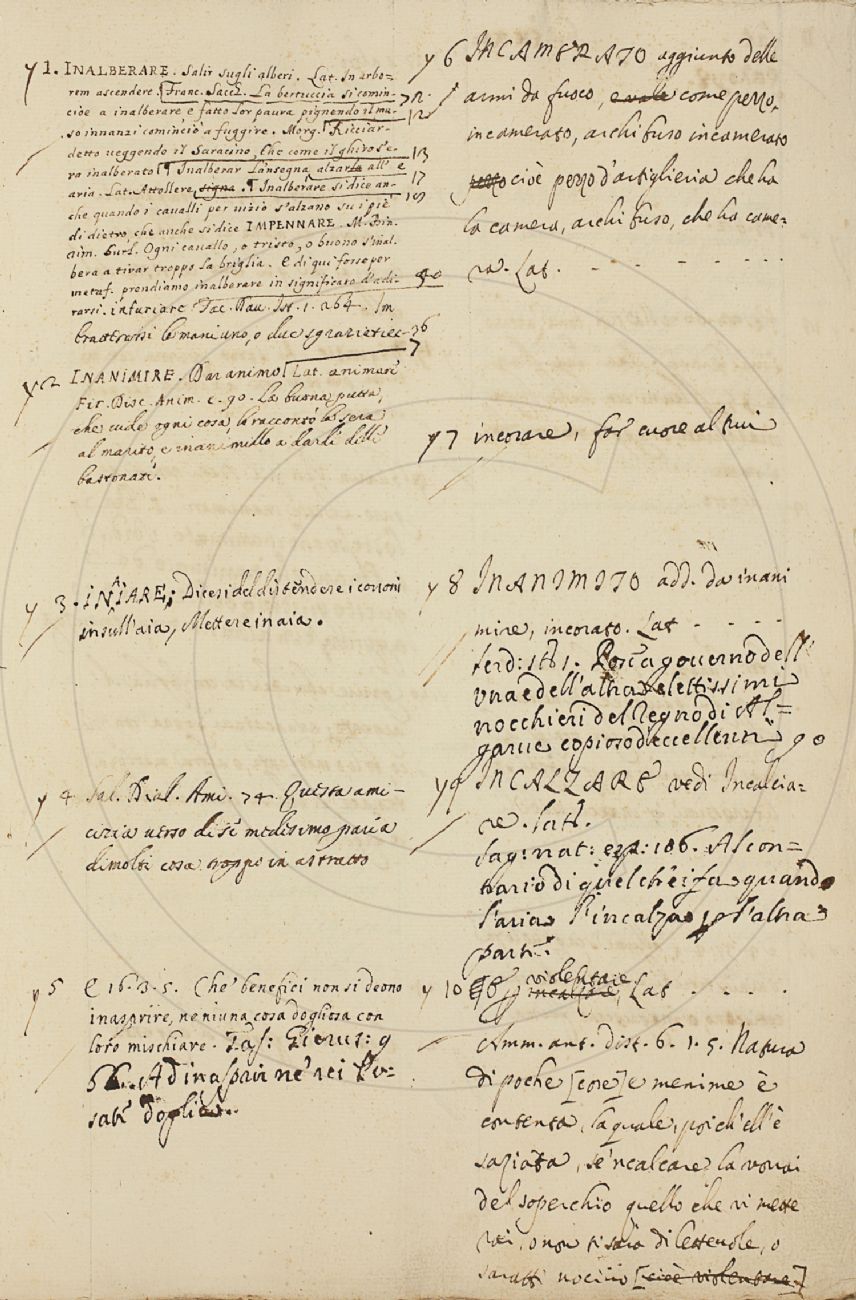 y 1. INALBERARE. Salir sugli alberi. Lat. In arbo=
rem ascendere. Franc. Sacc. La bertuccia si comin-
ciòe a inalberare e fatto lor paura pignendo il mu-
so innanzi cominciò a fuggire. Morg. Ricciar-
detto veggendo il Saracino, Che come il ghiro s'e-
ra inalberato ¶ Inalberar l'ansegna alzarla all'
aria. Lat. Attollere signa. ¶ Inalberare si dice an-
che quando i cavalli per vizio s'alzano su i piè
di dietro, che anche si dice IMPENNARE. M. Bin.
rim. burl. Ogni cavallo, o tristo, o buono s'inal-
bera a tirar troppo la briglia. E di qui forse per
metaf. prendiamo inalberare in significato d'adi-
rarsi. infuriare Tac. Dav. Ist. 1. 264. Im
le mani uno, o due
y 2 INANIMIRE. Dar animo Lat. animare
Fir. Disc. Anim. c. 90. La buona putta,
che vide ogni cosa, la raccontò la sera
al marito, e inanimillo a darli delle
bastonate.
y 3. INAIARE; Dicesi del distendere i covoni
in sull'aia, Mettere in aia.
y 4 Sal. Dial. Ami. 74. Questa ami-
cizia verso di sé medesimo paria
di molti cosa troppo in astratto
y 5 E 16. 3. 5. Che' benefici non si deono
inasprire, ne niuna cosa dogliosa con
loro mischiare. Tass: Gierus: 9
Ad inasprir ne' rei
y 6 INCAMERATO aggiunto delle
armi da fuoco, e vale come pezzo,
incamerato, archibuso incamerato
cioè pezzo d'artiglieria che ha
la camera, archibuso, che ha came-
ra. Lat. - - - - - - -
y 7 incorare, far cuore altrui
y 8 INANIMITO add. da inani
mire, incorato. Lat - - - -
ferd: 1. governo dell'
una e dell'altra elettissimi
nocchieri del Regno di Al=
garve copioso di eccellenti 90
y 9 INCALZARE vedi Incalcia=
re. Lat.
Sag: nat: esp: 186. Al con=
trario di quel ch'ei fa quando
l'aria l'incalza l'altra
parte.
y 10 violentare incalzare, Lat - - - -
Amm. ant. dist. 6. 1. 5. Natura
di poche [core] e menime è
contenta, la quale, poich'ell'è
saziata, se 'ncalcare la vorrai
del soperchio quello che vi mette
rai, o non ti saria dilettevole, o
saratti nocivo [cioè violentare]